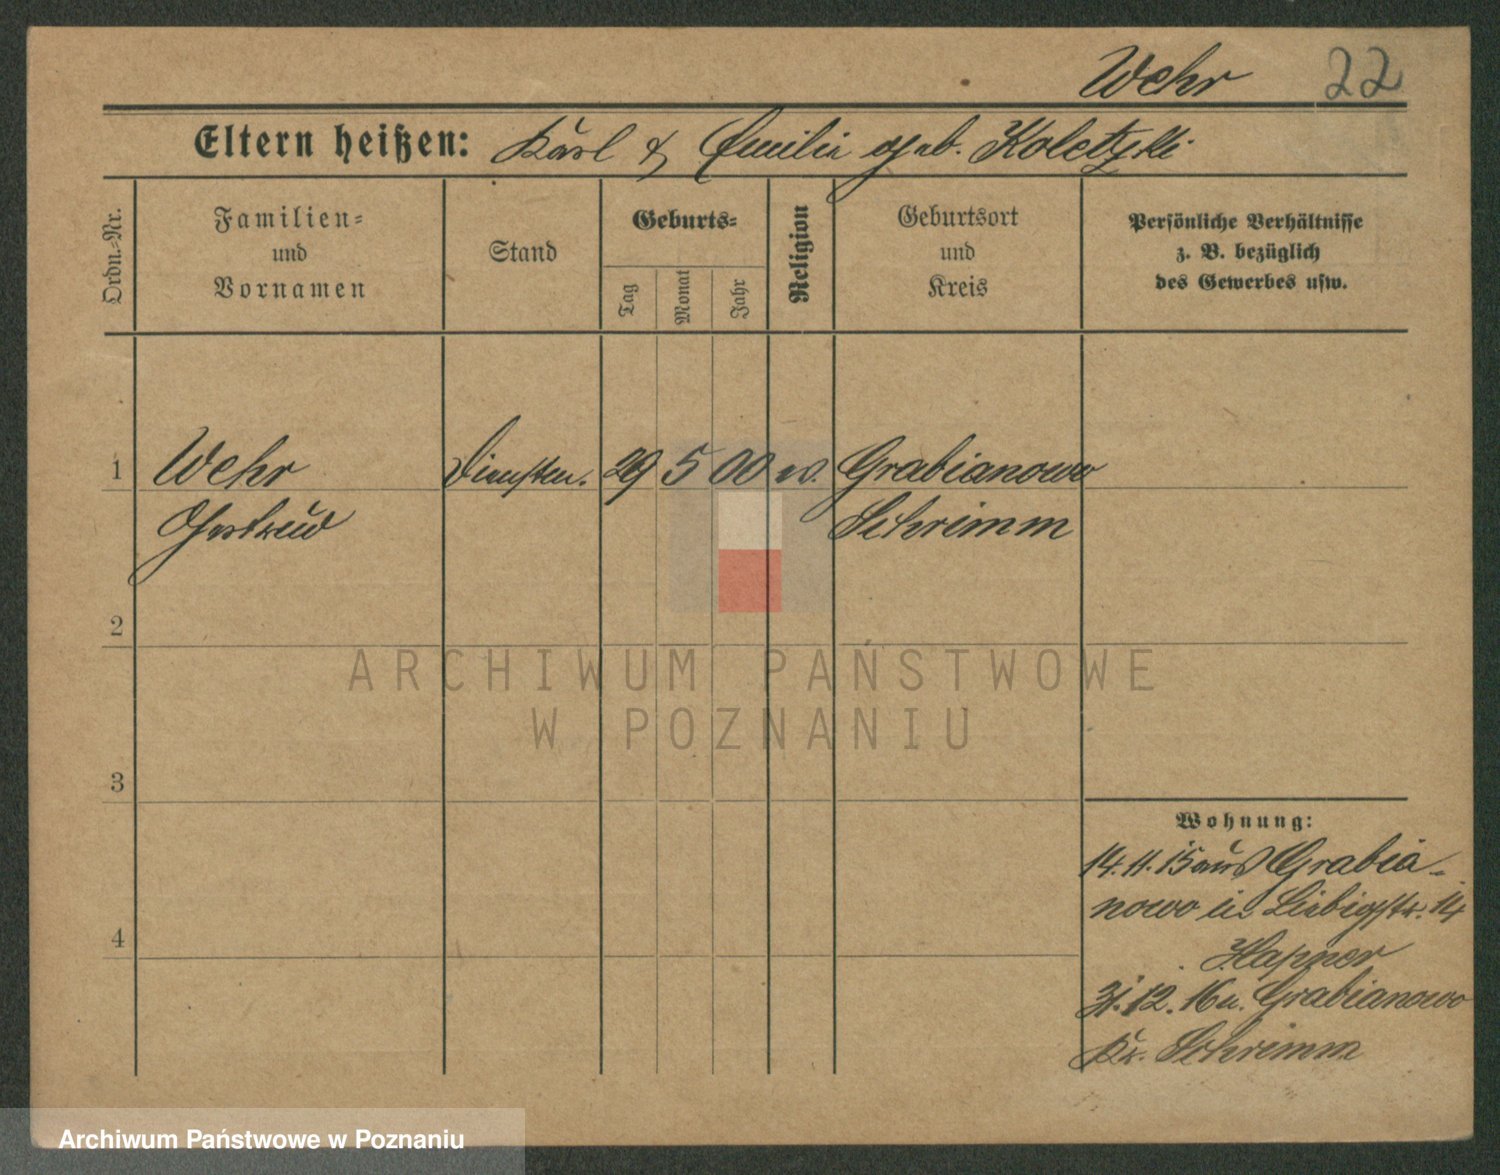 Wehr 22
Eltern heißen: Karl & Emilie geb. Koletzki
Ordn.=Nr.
Familien=
und
Vornamen
Stand
Geburts=
Tag
Monat
Jahr
Religion
Geburtsort
und
Kreis
Persönliche Verhältnisse
z. B. bezüglich
des Gewerbes usw.
1 Wehr Dienstm. 29 5 00 ev. Grabianowo
Gertrud Schrimm
2
3
4
Wohnung:
14. 11. 15 aus Grabia-
nowo in Liebigstr. 14
31. 12. 16 n. Grabianowo
Kr. Schrimm
ARCHIWUM PAŃSTWOWE
W POZNANIU
Archiwum Państwowe w Poznaniu